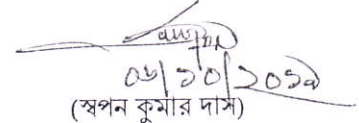 ০৬/১০/২০১৯
(স্বপন কুমার দাস)